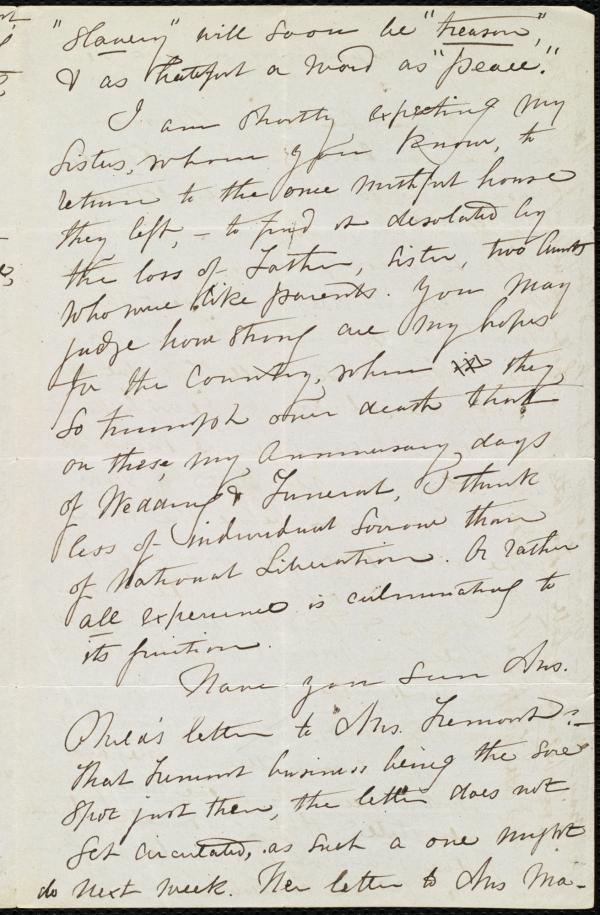 "Slavery" will soon be "treason",
& as hateful a word as "peace."
I am shortly expecting my
sisters, whom you know, to
return to the once mirthful house
they left, – to find it desolated by
the loss of Father, sister, two Aunts
who were like parents. You may
judge how strong are my hopes
for the country, when they
so triumph over death that
on these, my Anniversary days
of Wedding & Funeral, I think
less of individual sorrow than
of National Liberation. Or rather
all experience is culminating to
its fruition.
Have you seen Mrs.
Child's letter to Mrs. Fremont? –
That Fremont business being the sore
spot just then, the letter does not
get circulated, as such a one might
do next week. Her letter to Mrs Ma-